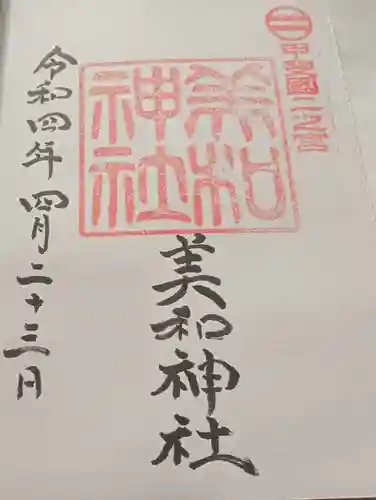 甲斐國二之宮
美和神社
美和神社
令和四年四月二十三日